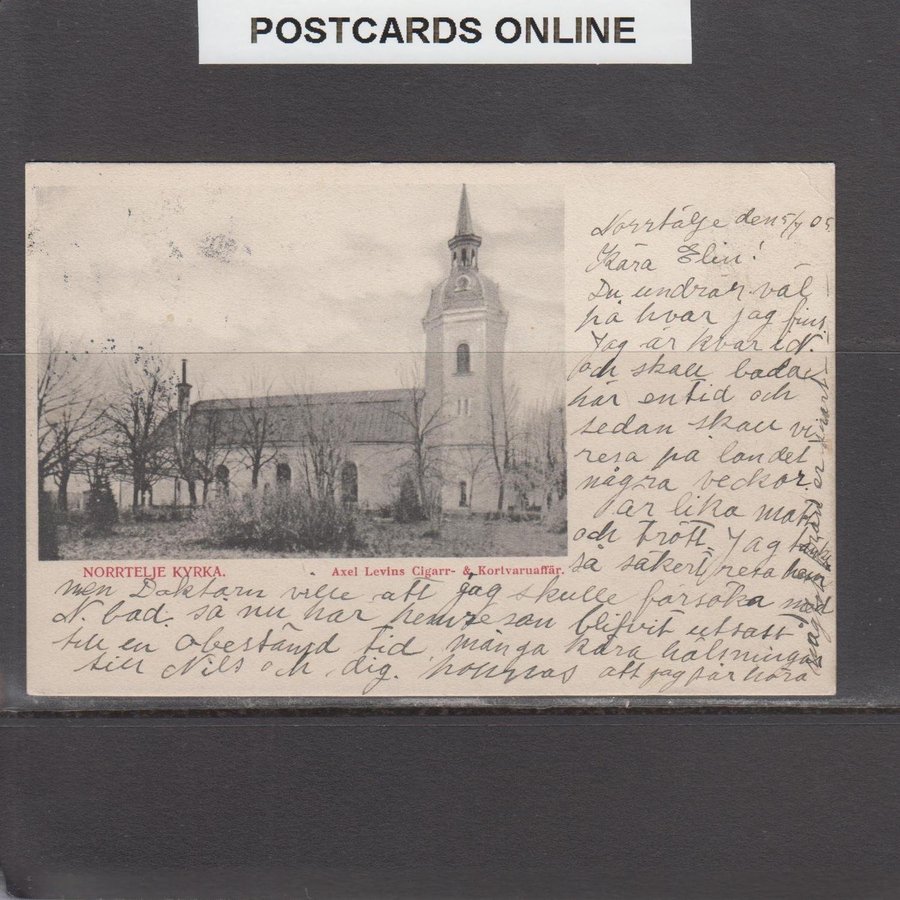 POSTCARDS ONLINE
Norrtälje den 5/7 05
Kära Elin!
Du undrar väl
på hvar jag fins.
Jag är kvar i N.
och skall bada
här en tid och
sedan skall vi
resa på landet
några veckor.
Är lika matt
och trött. Jag
så säkert resa hem
NORRTELJE KYRKA.
Axel Levins Cigarr- & Kortvaruaffär.
men Doktorn ville att jag skulle försöka med
N. bad. så nu har hemresan blifvit utsatt
till en obestämd tid många kära hälsningar
till Nils och dig. hoppas att jag får höra